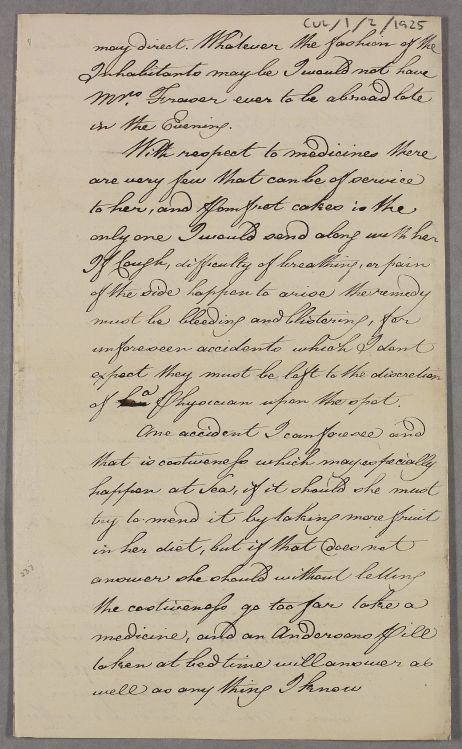 CUL/1/2/1925
may direct. Whatever the fashion of the
Inhabitants may be I would not have
Mrs. Fraser ever to be abroad late
in the Evening.
With respect to medicines there
are very few that can be of service
to her, and Pomfret cakes is the
only one I would send along with her
If Cough, difficulty of breathing, or pain
of the side happen to arise the remedy
must be bleeding and blistering, for
unforeseen accidents which I dont
expect they must be left to the discretion
of a Physician upon the spot.
One accident I can foresee and
that is costiveness which may especially
happen at Sea, if it should she must
try to mend it by taking more fruit
in her diet, but if that does not
answer she should without letting
the costiveness go too far take a
medicine, and an Andersons Pill
taken at bed time will answer as
well as any thing I know
237